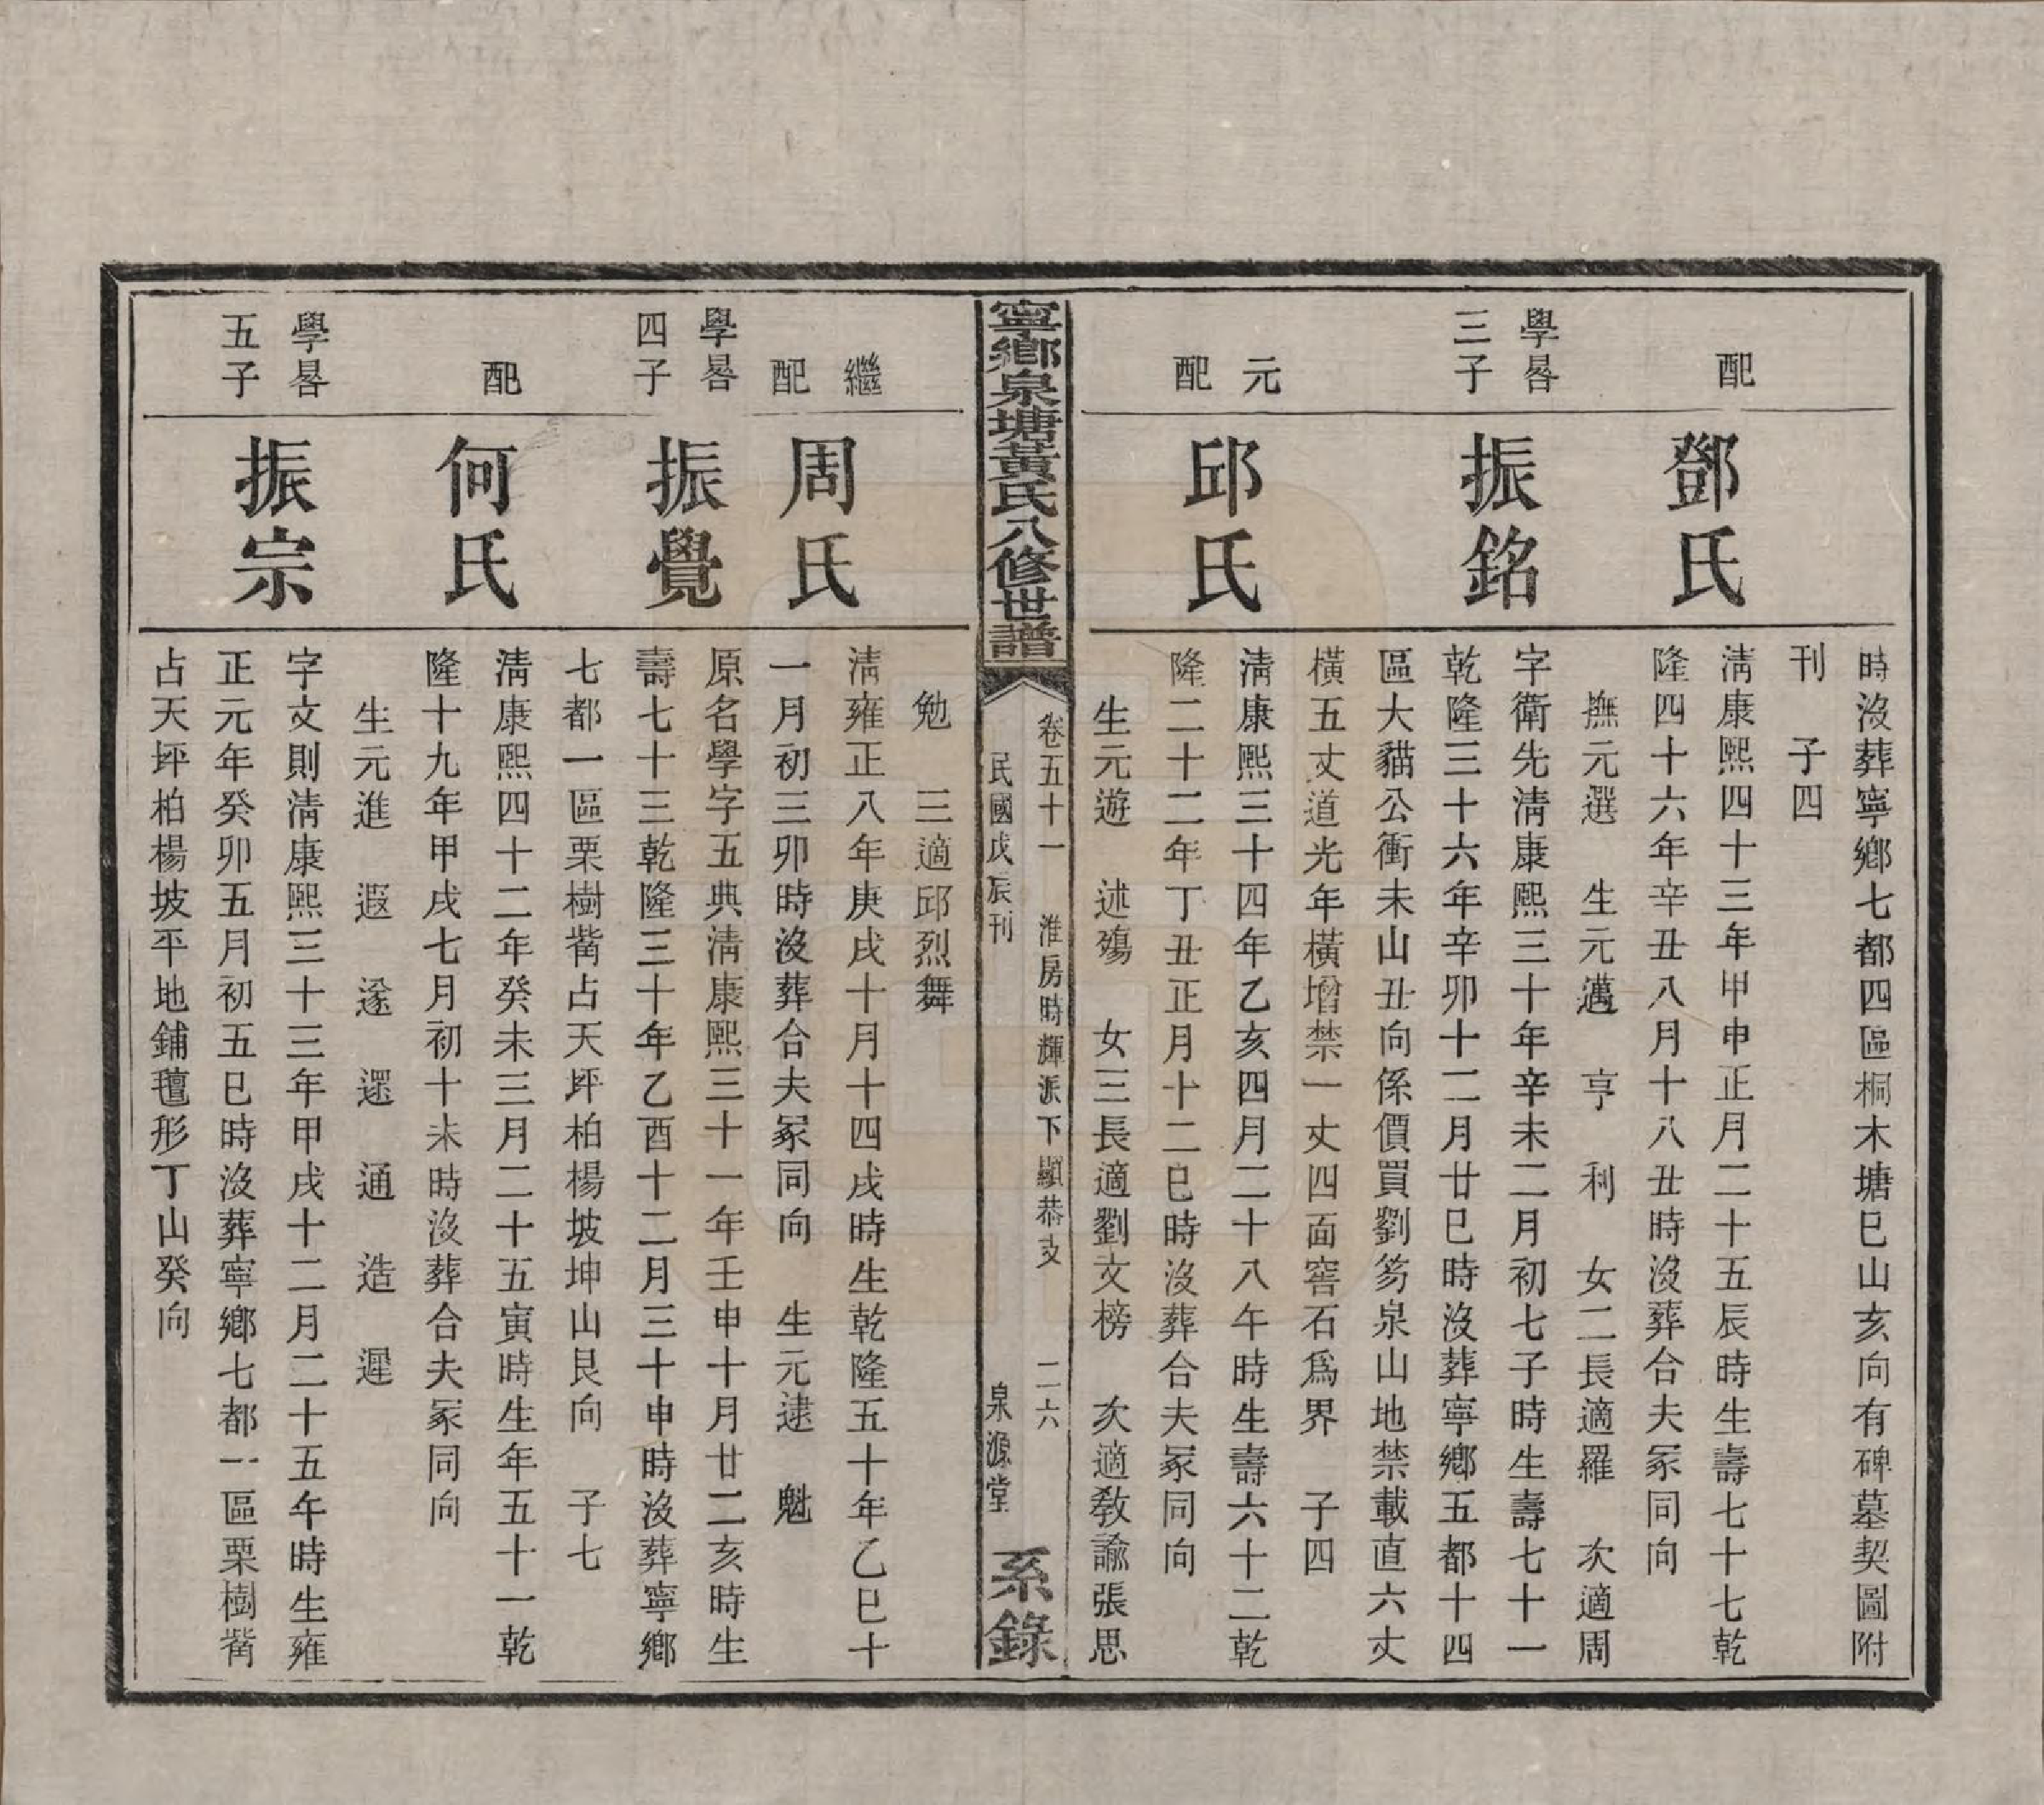 時沒葬寧鄉七都四區桐木塘巳山亥向有碑墓契圖附
刊　子四
配
鄧氏
清康熙四十三年甲申正月二十五辰時生壽七十七乾
隆四十六年辛丑八月十八丑時沒葬合夫冢同向
撫元選　生元邁　亨　利　女二長適羅　次適周
學晷
三子
振銘
字衛先清康熙三十年辛未二月初七子時生壽七十一
乾隆三十六年辛卯十二月廿巳時沒葬寧鄉五都十四
區大貓公衝未山丑向係價買劉笏泉山地禁載直六丈
橫五丈道光年橫增禁一丈四面窖石爲界　子四
元
配
邱氏
清康熙三十四年乙亥四月二十八午時生壽六十二乾
隆二十二年丁丑正月十二巳時沒葬合夫冢同向
生元遊　述殤　女三長適劉文榜　次適教諭張思
寧鄉泉塘黃氏八修世譜
卷五十一　淮房時輝派下顯恭支　二六
民國戊辰刊　泉源堂
系錄
勉　三適邱烈舞
繼
配
周氏
清雍正八年庚戌十月十四戌時生乾隆五十年乙巳十
一月初三卯時沒葬合夫冢同向　生元逮　魁
學晷
四子
振覺
原名學字五典清康熙三十一年壬申十月廿二亥時生
壽七十三乾隆三十年乙酉十二月三十申時沒葬寧鄉
七都一區栗樹嘴占天坪柏楊坡坤山艮向　子七
配
何氏
清康熙四十二年癸未三月二十五寅時生年五十一乾
隆十九年甲戌七月初十未時沒葬合夫冢同向
生元進　遐　遂　還　通　造　遲
學晷
五子
振宗
字文則清康熙三十三年甲戌十二月二十五午時生雍
正元年癸卯五月初五巳時沒葬寧鄉七都一區栗樹嘴
占天坪柏楊坡平地鋪氊形丁山癸向